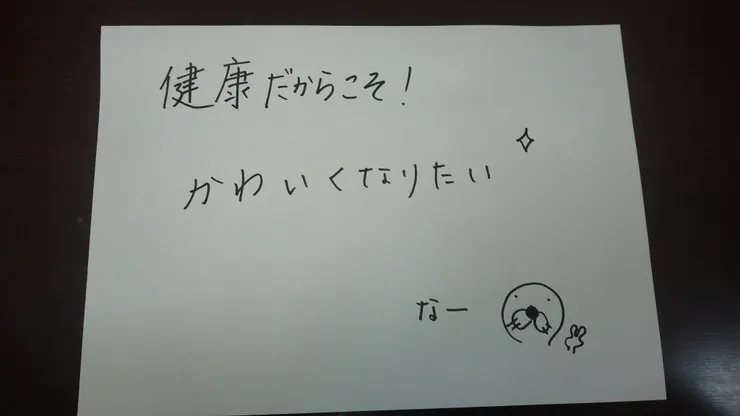 健康だからこそ！
かわいくなりたい
なー